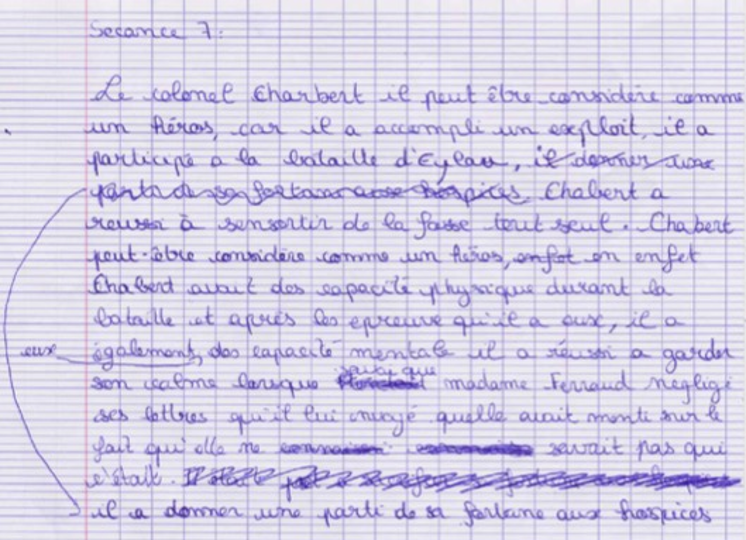 Secance 7:
Le colonel Charbert il peut être considère comme
un héros, car il a accompli un exploit, il a
participé a la bataille d'Eylau, il donner une
partie de sa fortune aux hospices. Chabert a
reussi à sensortir de la fosse tout seul. Chabert
peut-être considère comme un héros, enfet en enfet
Chabert avait des capacité physique durant la
bataille et après les epreuve qu'il a eux, il a
eux également, des capacité mentale il a réussi a garder
son calme lorsque madame Ferraud négligé
ses lettres qu'il lui envoyé quelle avait menti sur le
fait qu'elle ne savait pas qui
s'était.
il a donner une parti de sa fortune aux hospices